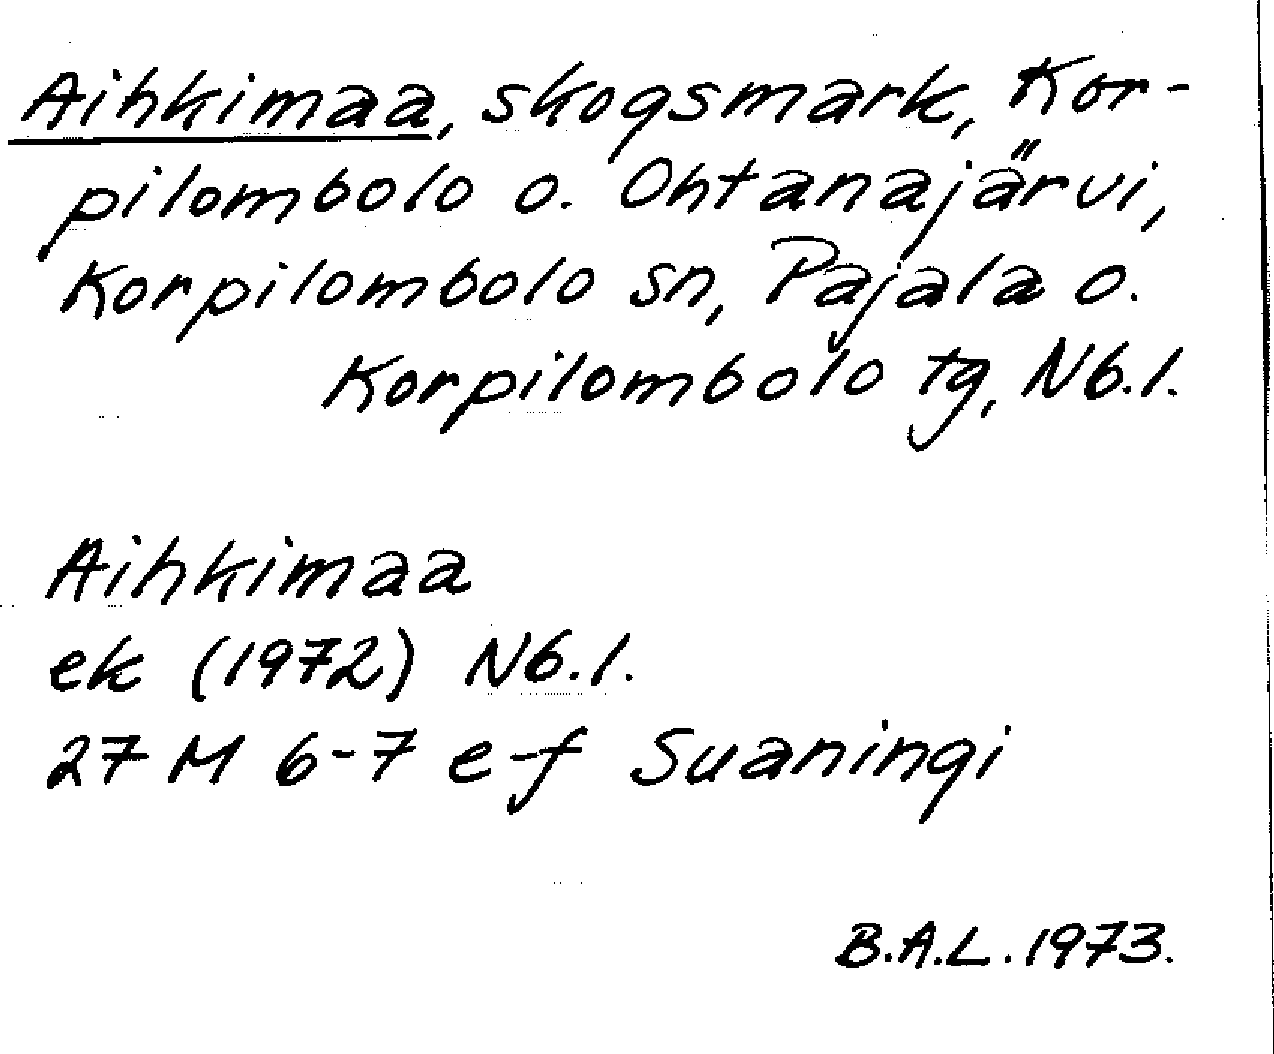 Aihkimaa, skogsmark, Kor-
pilombolo o. Ohtanajärvi,
Korpilombolo sn, Pajala o.
Korpilombolo tg, Nb.l.
Aihkimaa
ek (1972) Nb.l.
27 M 6-7 e-f Suaningi
B.A.L. 1973.